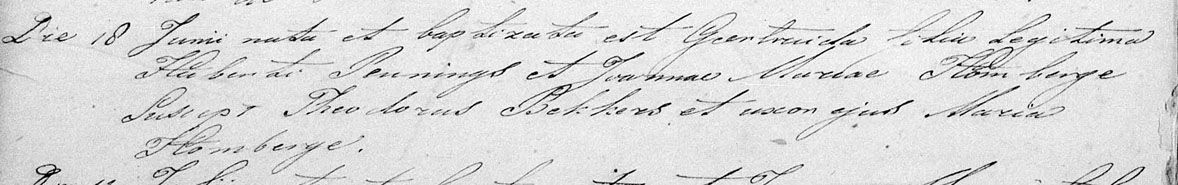 Die 18 Junii nata et baptizata est Gertruida filia Legitima
Huberti Pennings et Joannae Mariae Homberge
Suscept Theodorus Bekkers et uxor ejus Maria
Homberge.